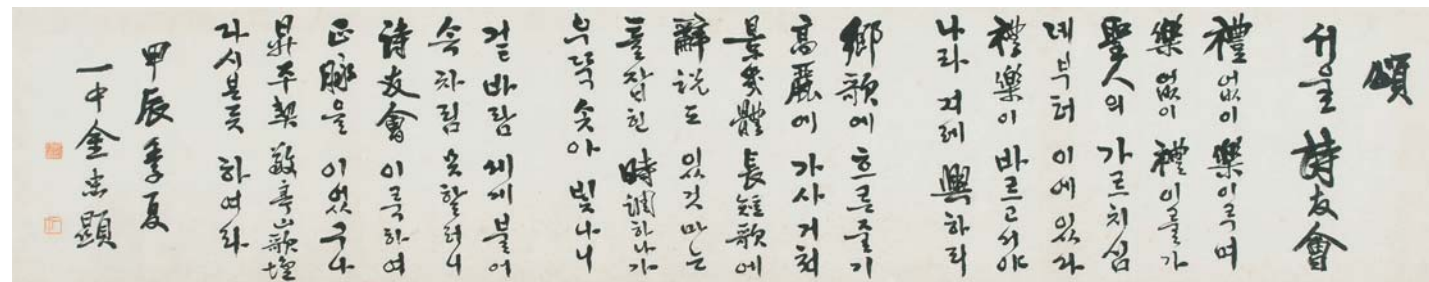 頌
서울 詩友會
禮 없이 樂 이르며
樂 없이 禮 이를가
聖人의 가르치심
예부터 이에 있다
禮樂이 바르고서야
나라 겨레 興하리
鄕歌에 흐른 줄기
高麗에 가사 거쳐
景幾體 長短歌에
辭說도 있것마는
틀잡힌 時調 하나가
우뚝 솟아 빛나니
겉바람 세게 불어
속차림 못할러니
詩友會 이룩하여
正脈을 이었구나
鼎率契 敬亭山歌壇
다시 본 듯 하여라
甲辰 季夏
一中 金忠顯